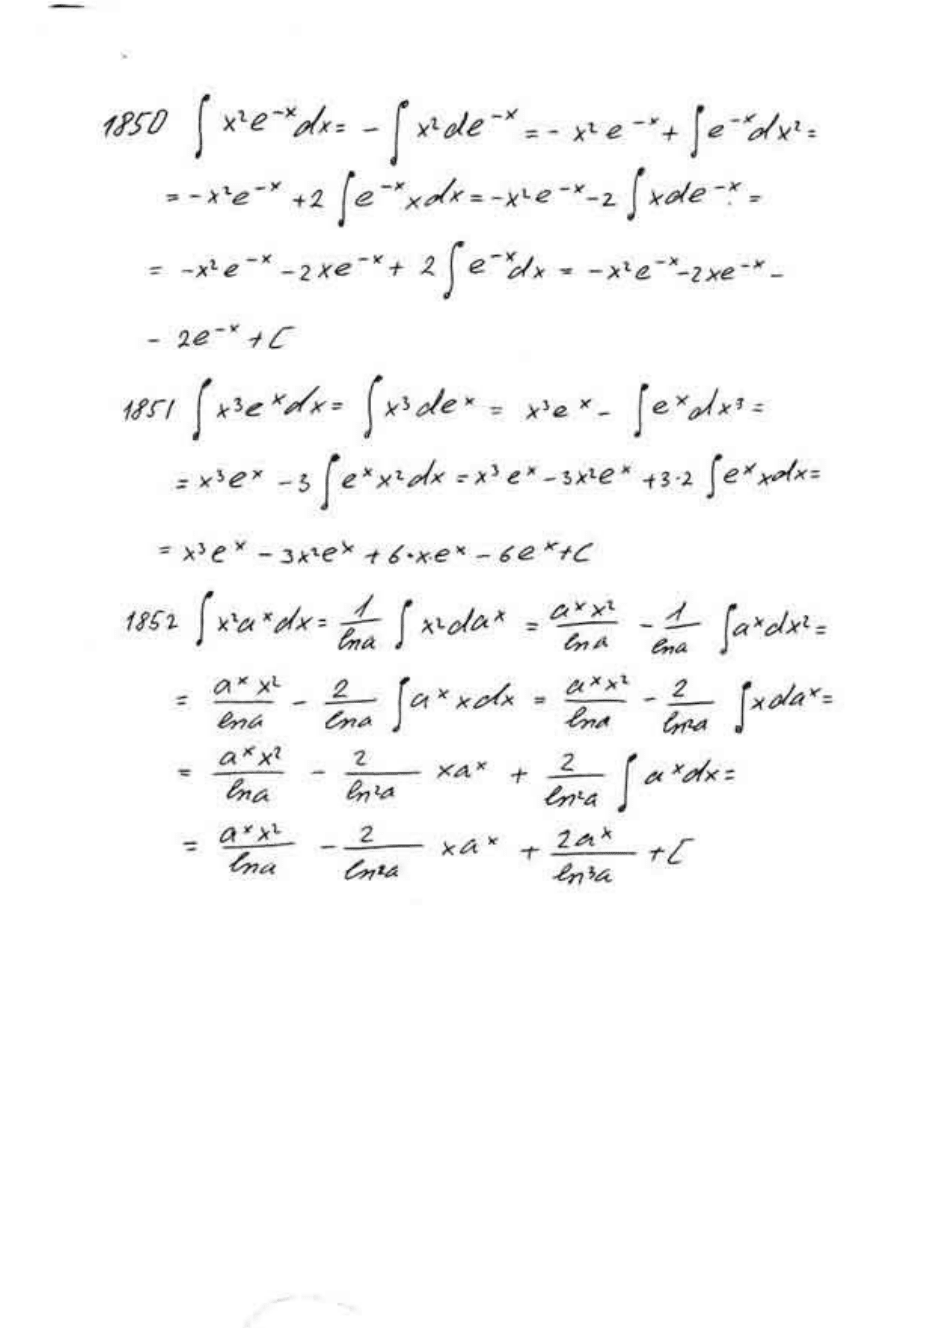 1850 ∫ x²e⁻ˣdx = - ∫ x²de⁻ˣ = - x²e⁻ˣ + ∫e⁻ˣdx² =
= -x²e⁻ˣ +2 ∫e⁻ˣxdx = -x²e⁻ˣ -2 ∫xde⁻ˣ =
= -x²e⁻ˣ - 2xe⁻ˣ + 2∫e⁻ˣdx = -x²e⁻ˣ -2xe⁻ˣ -
- 2e⁻ˣ + C
1851 ∫x³eˣdx = ∫x³deˣ = x³eˣ - ∫eˣdx³ =
= x³eˣ - 3∫eˣx²dx = x³eˣ - 3x²eˣ +3·2 ∫eˣxdx =
= x³eˣ - 3x²eˣ + 6·x·eˣ - 6eˣ + C
1852 ∫x²aˣdx = 1/lna ∫x²daˣ = aˣx²/lna - 1/lna ∫aˣdx² =
= aˣx²/lna - 2/lna ∫aˣxdx = aˣx²/lna - 2/ln²a ∫xdaˣ =
= aˣx²/lna - 2/ln²a xaˣ + 2/ln²a ∫aˣdx =
= aˣx²/lna - 2/ln²a xaˣ + 2aˣ/ln³a + C